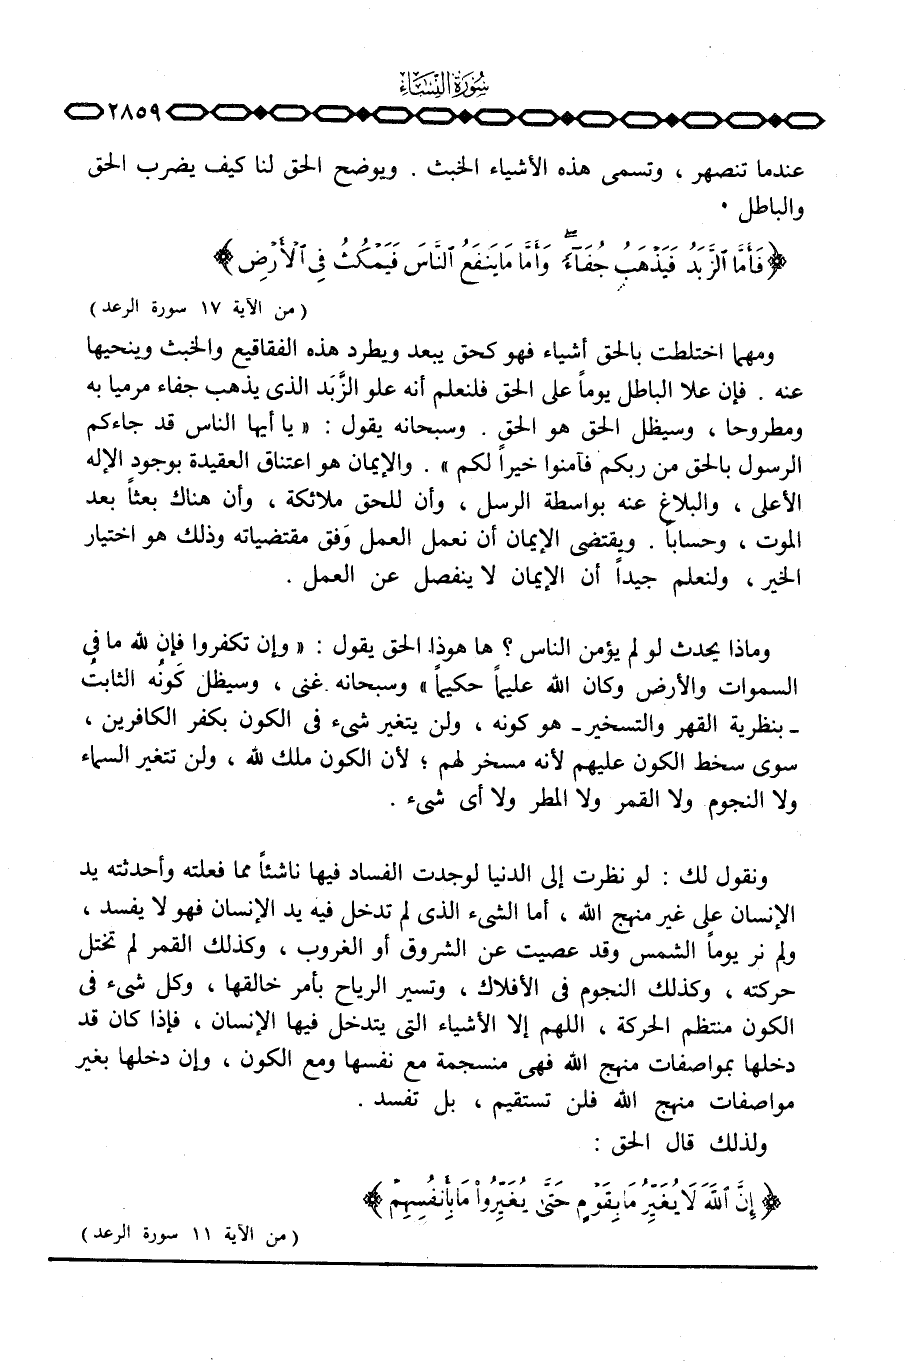 سُورَةُ النِّسَاءِ
٢٨٥٩
عندما تنصهر ، وتسمى هذه الأشياء الخبث . ويوضح الحق لنا كيف يضرب الحق
والباطل .
﴿ فَأَمَّا ٱلزَّبَدُ فَيَذْهَبُ جُفَآءً ۖ وَأَمَّا مَا يَنفَعُ ٱلنَّاسَ فَيَمْكُثُ فِى ٱلْأَرْضِ ﴾
( من الآية ١٧ سورة الرعد )
ومهما اختلطت بالحق أشياء فهو كحق يبعد ويطرد هذه الفقاقيع والخبث وينحيها
عنه . فإن علا الباطل يوماً على الحق فلنعلم أنه علو الزَّبَد الذى يذهب جفاء مرميا به
ومطروحا ، وسيظل الحق هو الحق . وسبحانه يقول : « يا أيها الناس قد جاءكم
الرسول بالحق من ربكم فآمنوا خيراً لكم » . والإيمان هو اعتناق العقيدة بوجود الإله
الأعلى ، والبلاغ عنه بواسطة الرسل ، وأن للحق ملائكة ، وأن هناك بعثاً بعد
الموت ، وحساباً . ويقتضى الإيمان أن نعمل العمل وَفق مقتضياته وذلك هو اختيار
الخير ، ولنعلم جيداً أن الإيمان لا ينفصل عن العمل .
وماذا يحدث لو لم يؤمن الناس ؟ ها هوذا الحق يقول : « وإن تكفروا فإن لله ما فى
السموات والأرض وكان الله عليماً حكيماً » وسبحانه غنى ، وسيظل كَونُه الثابتُ
ـ بنظرية القهر والتسخير ـ هو كونه ، ولن يتغير شىء فى الكون بكفر الكافرين ،
سوى سخط الكون عليهم لأنه مسخر لهم ؛ لأن الكون ملك لله ، ولن تتغير السماء
ولا النجوم ولا القمر ولا المطر ولا أى شىء .
ونقول لك : لو نظرت إلى الدنيا لوجدت الفساد فيها ناشئاً مما فعلته وأحدثته يد
الإنسان على غير منهج الله ، أما الشىء الذى لم تدخل فيه يد الإنسان فهو لا يفسد ،
ولم نر يوماً الشمس وقد عصيت عن الشروق أو الغروب ، وكذلك القمر لم تختل
حركته ، وكذلك النجوم فى الأفلاك ، وتسير الرياح بأمر خالقها ، وكل شىء فى
الكون منتظم الحركة ، اللهم إلا الأشياء التى يتدخل فيها الإنسان ، فإذا كان قد
دخلها بمواصفات منهج الله فهى منسجمة مع نفسها ومع الكون ، وإن دخلها بغير
مواصفات منهج الله فلن تستقيم ، بل تفسد .
ولذلك قال الحق :
﴿ إِنَّ ٱللَّهَ لَا يُغَيِّرُ مَا بِقَوْمٍ حَتَّىٰ يُغَيِّرُوا۟ مَا بِأَنفُسِهِمْ ﴾
( من الآية ١١ سورة الرعد )